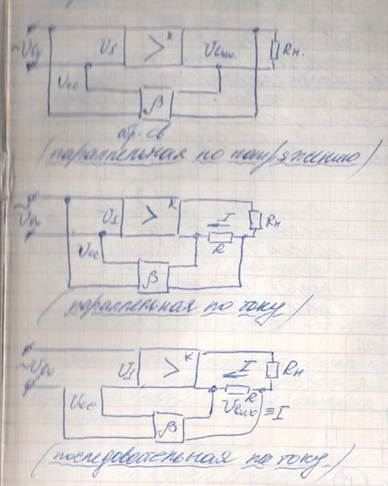 ~Uвх U1 > K Uвых. Rн.
Uос β
обр. св
(параллельная по напряжению)
~Uвх U1 > K I Rн
Uос R
β
(параллельная по току)
~Uвх U1 > K I Rн
Uос R
Uвых ≡ I
β
(последовательная по току.)